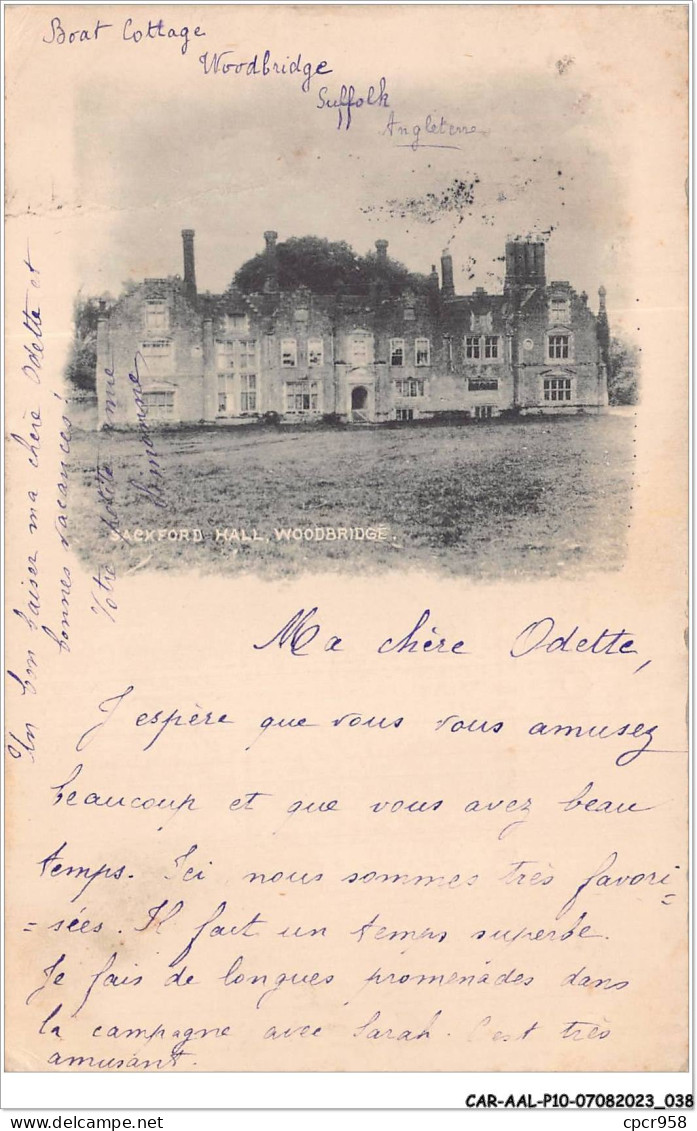 Boat Cottage
Woodbridge
Suffolk
Angleterre
SACKFORD HALL, WOODBRIDGE.
Ma chère Odette,
J'espère que vous vous amusez
beaucoup et que vous avez beau
temps. Ici nous sommes très favori
=sées. Il fait un temps superbe.
Je fais de longues promenades dans
la campagne avec Sarah. C'est très
amusant.
Un bon baiser ma chère Odette et
bonnes vacances!
Votre petite amie
CAR-AAL-P10-07082023_038
cpcr958